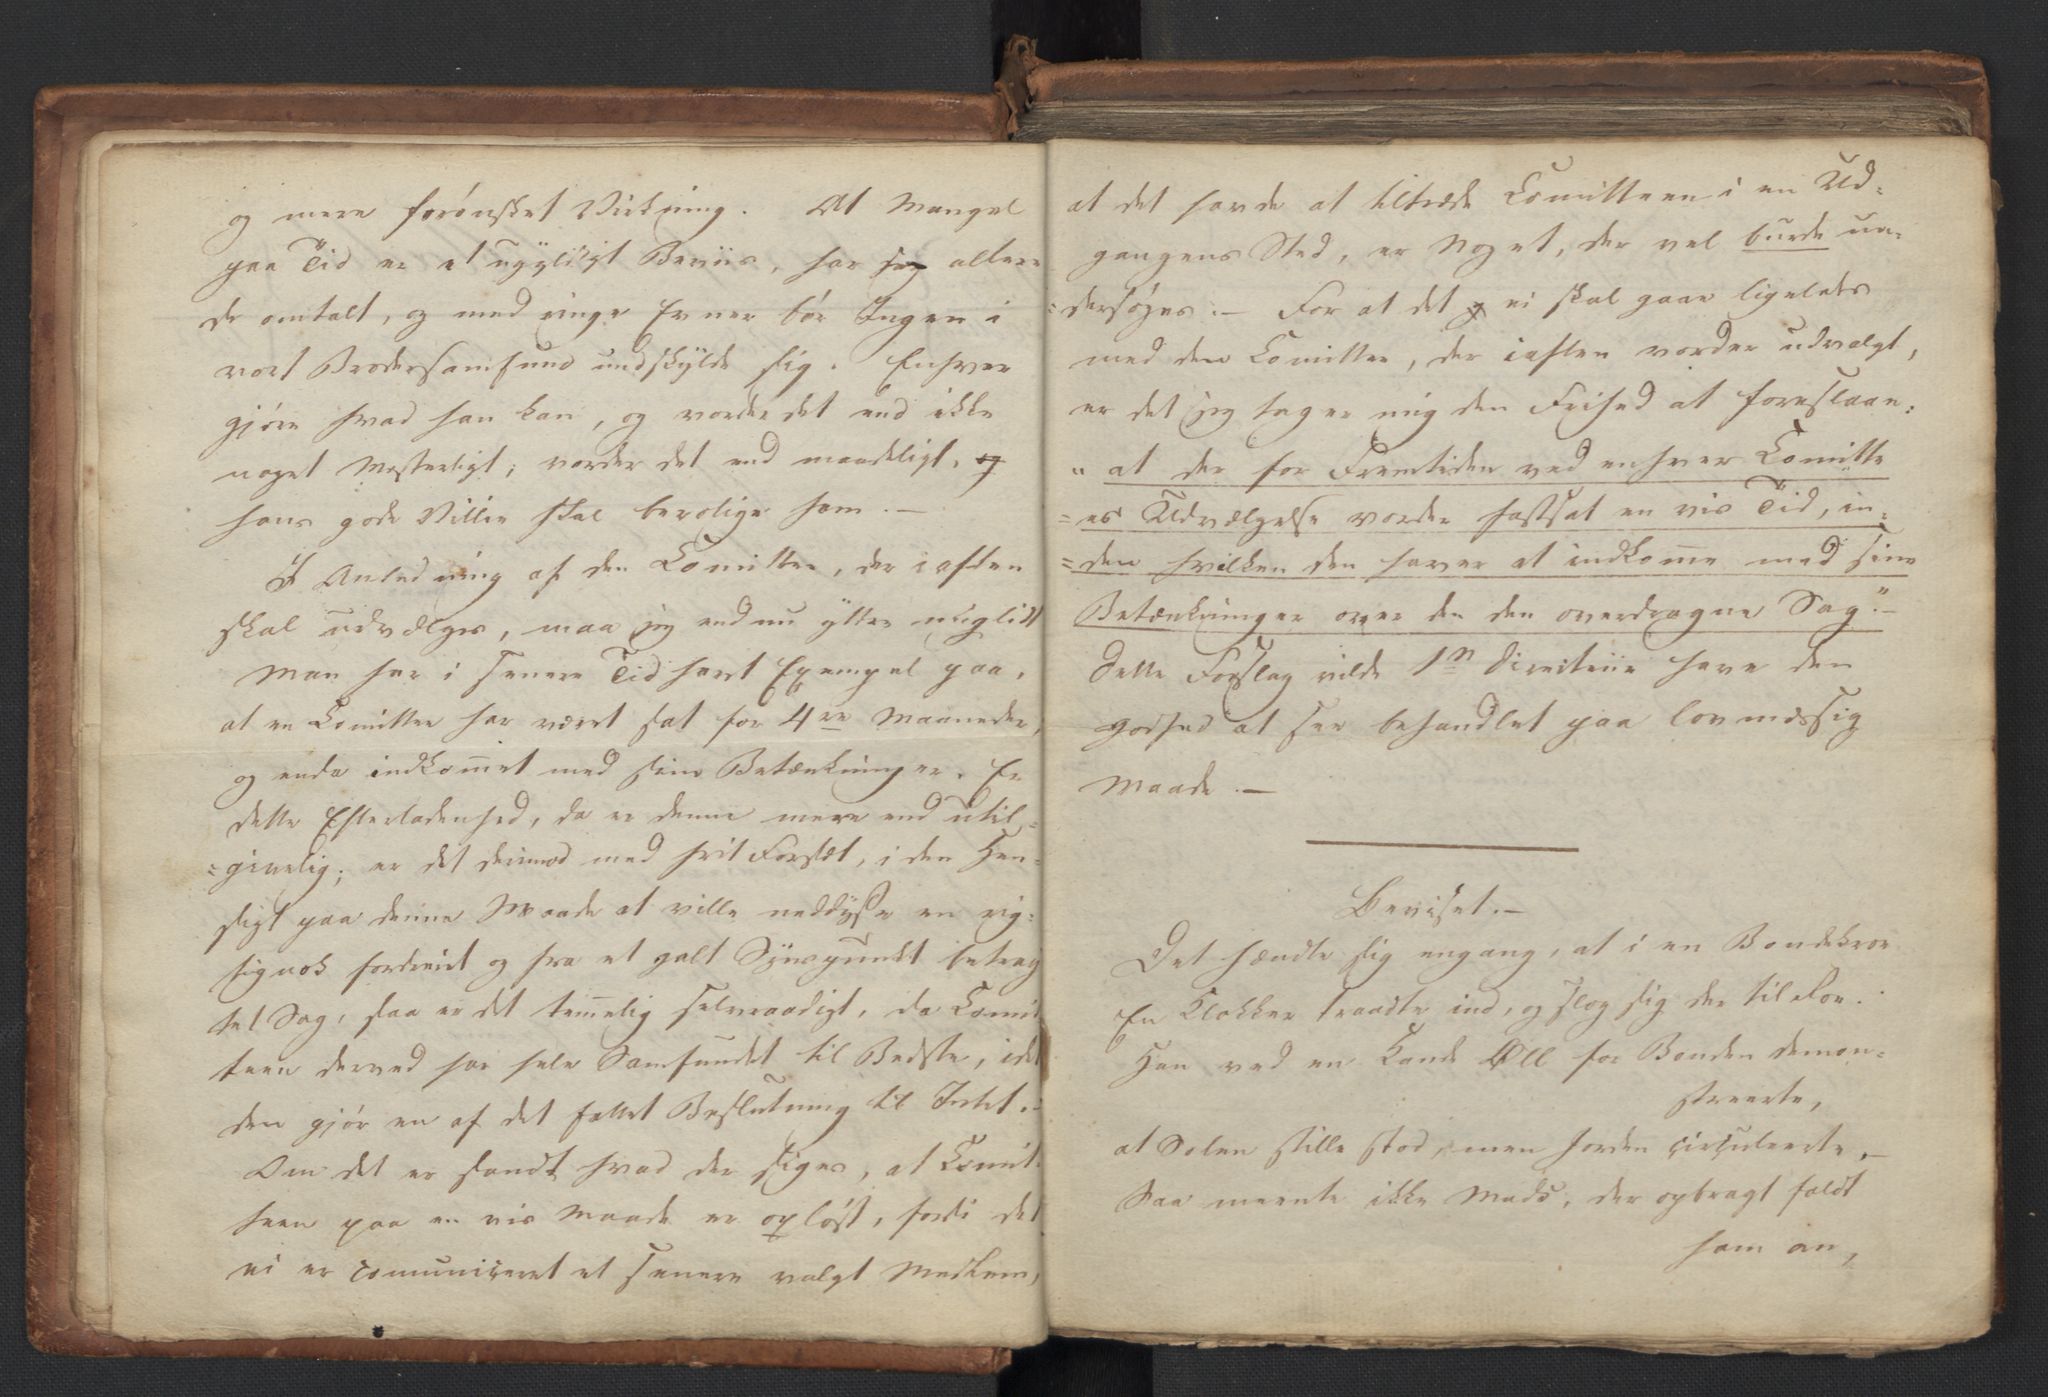 og mere forönsket Virkning. At Mangel
paa Tid er et ugyldigt Beviis, har jeg allere
de omtalt, og med ringe Evner bör Ingen i
vort Brodersamfund undskylde sig. Enhver
gjöre hvad han kan, og vorder det end ikke
noget Mesterligt, vorder det end maadeligt, og
hans gode Villie skal berolige ham. —
I Anledning af den Comittee, der iaften
skal udvælges, maa jeg endnu yttre
Man har i senere Tid havt Exempel paa,
at en Comittee har været sat for 4re Maaneder,
og enda indkom̅et med sine Betænkninger. Er
dette Efterladenhed, da er denne mere end util=
=givelig; er det derimod med frit Forsæt, i den Hen=
sigt paa denne Maade at ville neddysse en rig=
tignok fordreiet og fra et galt Synspunkt betrag
tet Sag, saa er det tem̅elig selvraadigt, da Comit
teen derved har hele Samfundet til Bedste, idet
den gjör en af det fattet Beslutning til Intet. —
Om det er sandt hvad der siges, at Comit=
teen paa en vis Maade er oplöst, fordi det
ei er communiceret et senere valgt Medlem,
at det havde at tiltræde Comitteen i en Ud=
gangens Sted, er Noget, der vel burde un=
=dersöges. — For at det ei skal gaae ligeledes
med den Comittee, der iaften vorder udvalgt,
er det jeg tager mig den Frihed at foreslaae:
"at der for Fremtiden ved enhver Comitte
=es Udvælgelse vorder fastsat en vis Tid, in=
=den hvilken den haver at indkom̅e med sine
Betænkninger over den den overdragne Sag". —
Dette Forslag vilde Directeur have den
Godhed at see behandlet paa lovmæssig
Maade. —
Beviset. —
Det hændte sig engang, at i en Bondekroe
En Klokker traadte ind, og slog sig der til Roe.
Han ved en Kande Öll for Bonden demon=
streerte,
at Solen stille stod, men Jorden circuleerte, —
Saa meente ikke Mads, der opbragt faldt
ham an,